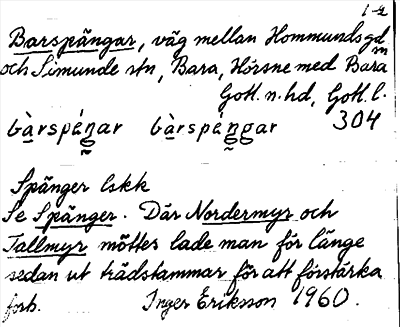 1-2
Barspängar, väg mellan Hommunds gd
och Simunde stn, Bara, Hörsne med Bara
Gotl. n. hd, Gotl. l.
bàrspéŋar bàrspéŋgar 304
Spänger lskk
Se Spänger. Där Nordermyr och
Tallmyr möttes lade man för länge
sedan ut trädstammar för att förstärka
förb. Inger Eriksson 1960.